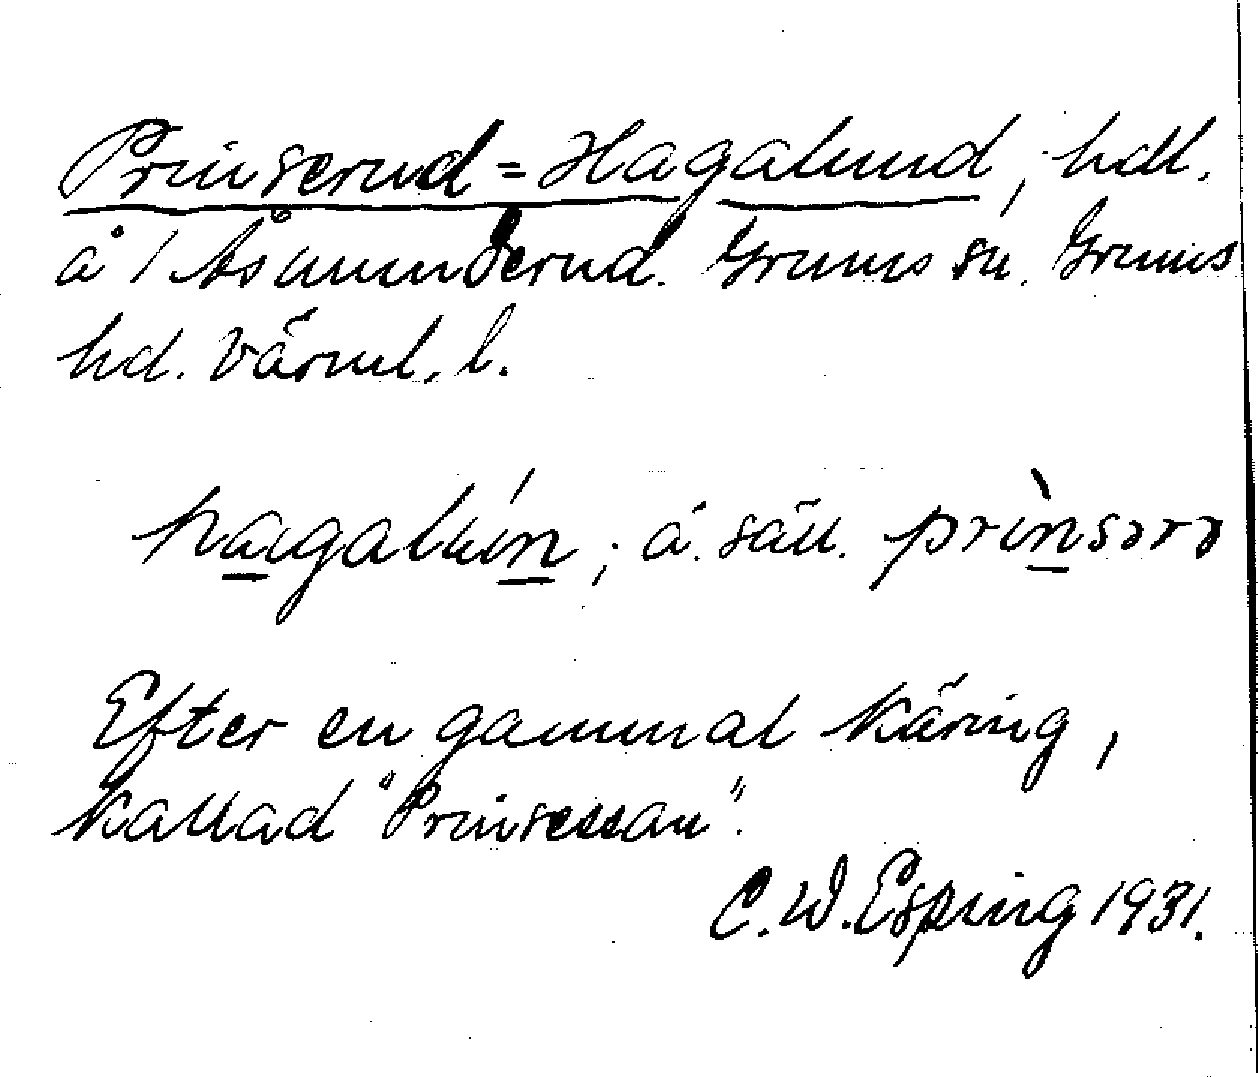 Prinserud = Hagalund, hdl.
å 1 Åsmunderud. Grums sn. Grums
hd. Värml. l.
hagalún, ä. säll. prìnsərə
Efter en gammal käring,
kallad "Prinsessan".
C. W. Esping 1931.